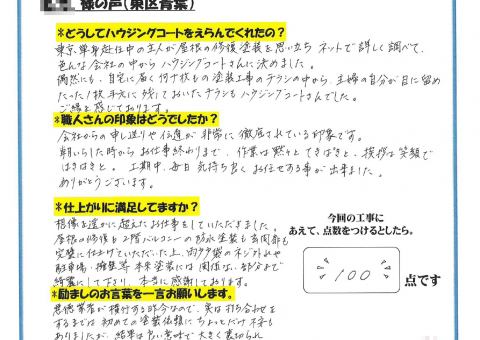 様の声(東区青葉)
*どうしてハウジングコートをえらんでくれたの?
東京単身赴任中の主人が屋根の修復塗装を思い立ち ネットで詳しく調べて、
色んな会社の中から ハウジングコートさんに決めました。
偶然にも、自宅に届く何十枚もの塗装工事のチラシの中から、主婦の自分が目に留め
たった1枚手元に残しておいたチラシもハウジングコートさんでした。
ご縁を感じております。
*職人さんの印象はどうでしたか?
会社からの申し送りや伝達が非常に徹底されている印象です。
朝いらした時からお仕事終わりまで、作業は黙々とてきぱきと、挨拶は笑顔で
はきはきと。工期中、毎日気持ち良くお任せする事が出来ました。
ありがとうございます。
*仕上がりに満足してますか?
想像を遥かに超えたお仕事をしていただきました。
屋根の修復も2階バルコニーの防水塗装も玄関部も
完璧に仕上げていただいた上、雨戸袋のネジゆるみや
駐車場・ 本来塗装には関係ない部分まで
綺麗にして下さり、本当に感謝しております。
今回の工事に
あえて、点数をつけるとしたら。
100
点です
*励ましのお言葉を一言お願いします。
悪徳業者が横行する昨今なので、実は打ち合わせを
するまでは初めての塗装依頼にちょっとだけ不安も
ありましたが、結果は良い意味で大きく裏切られ